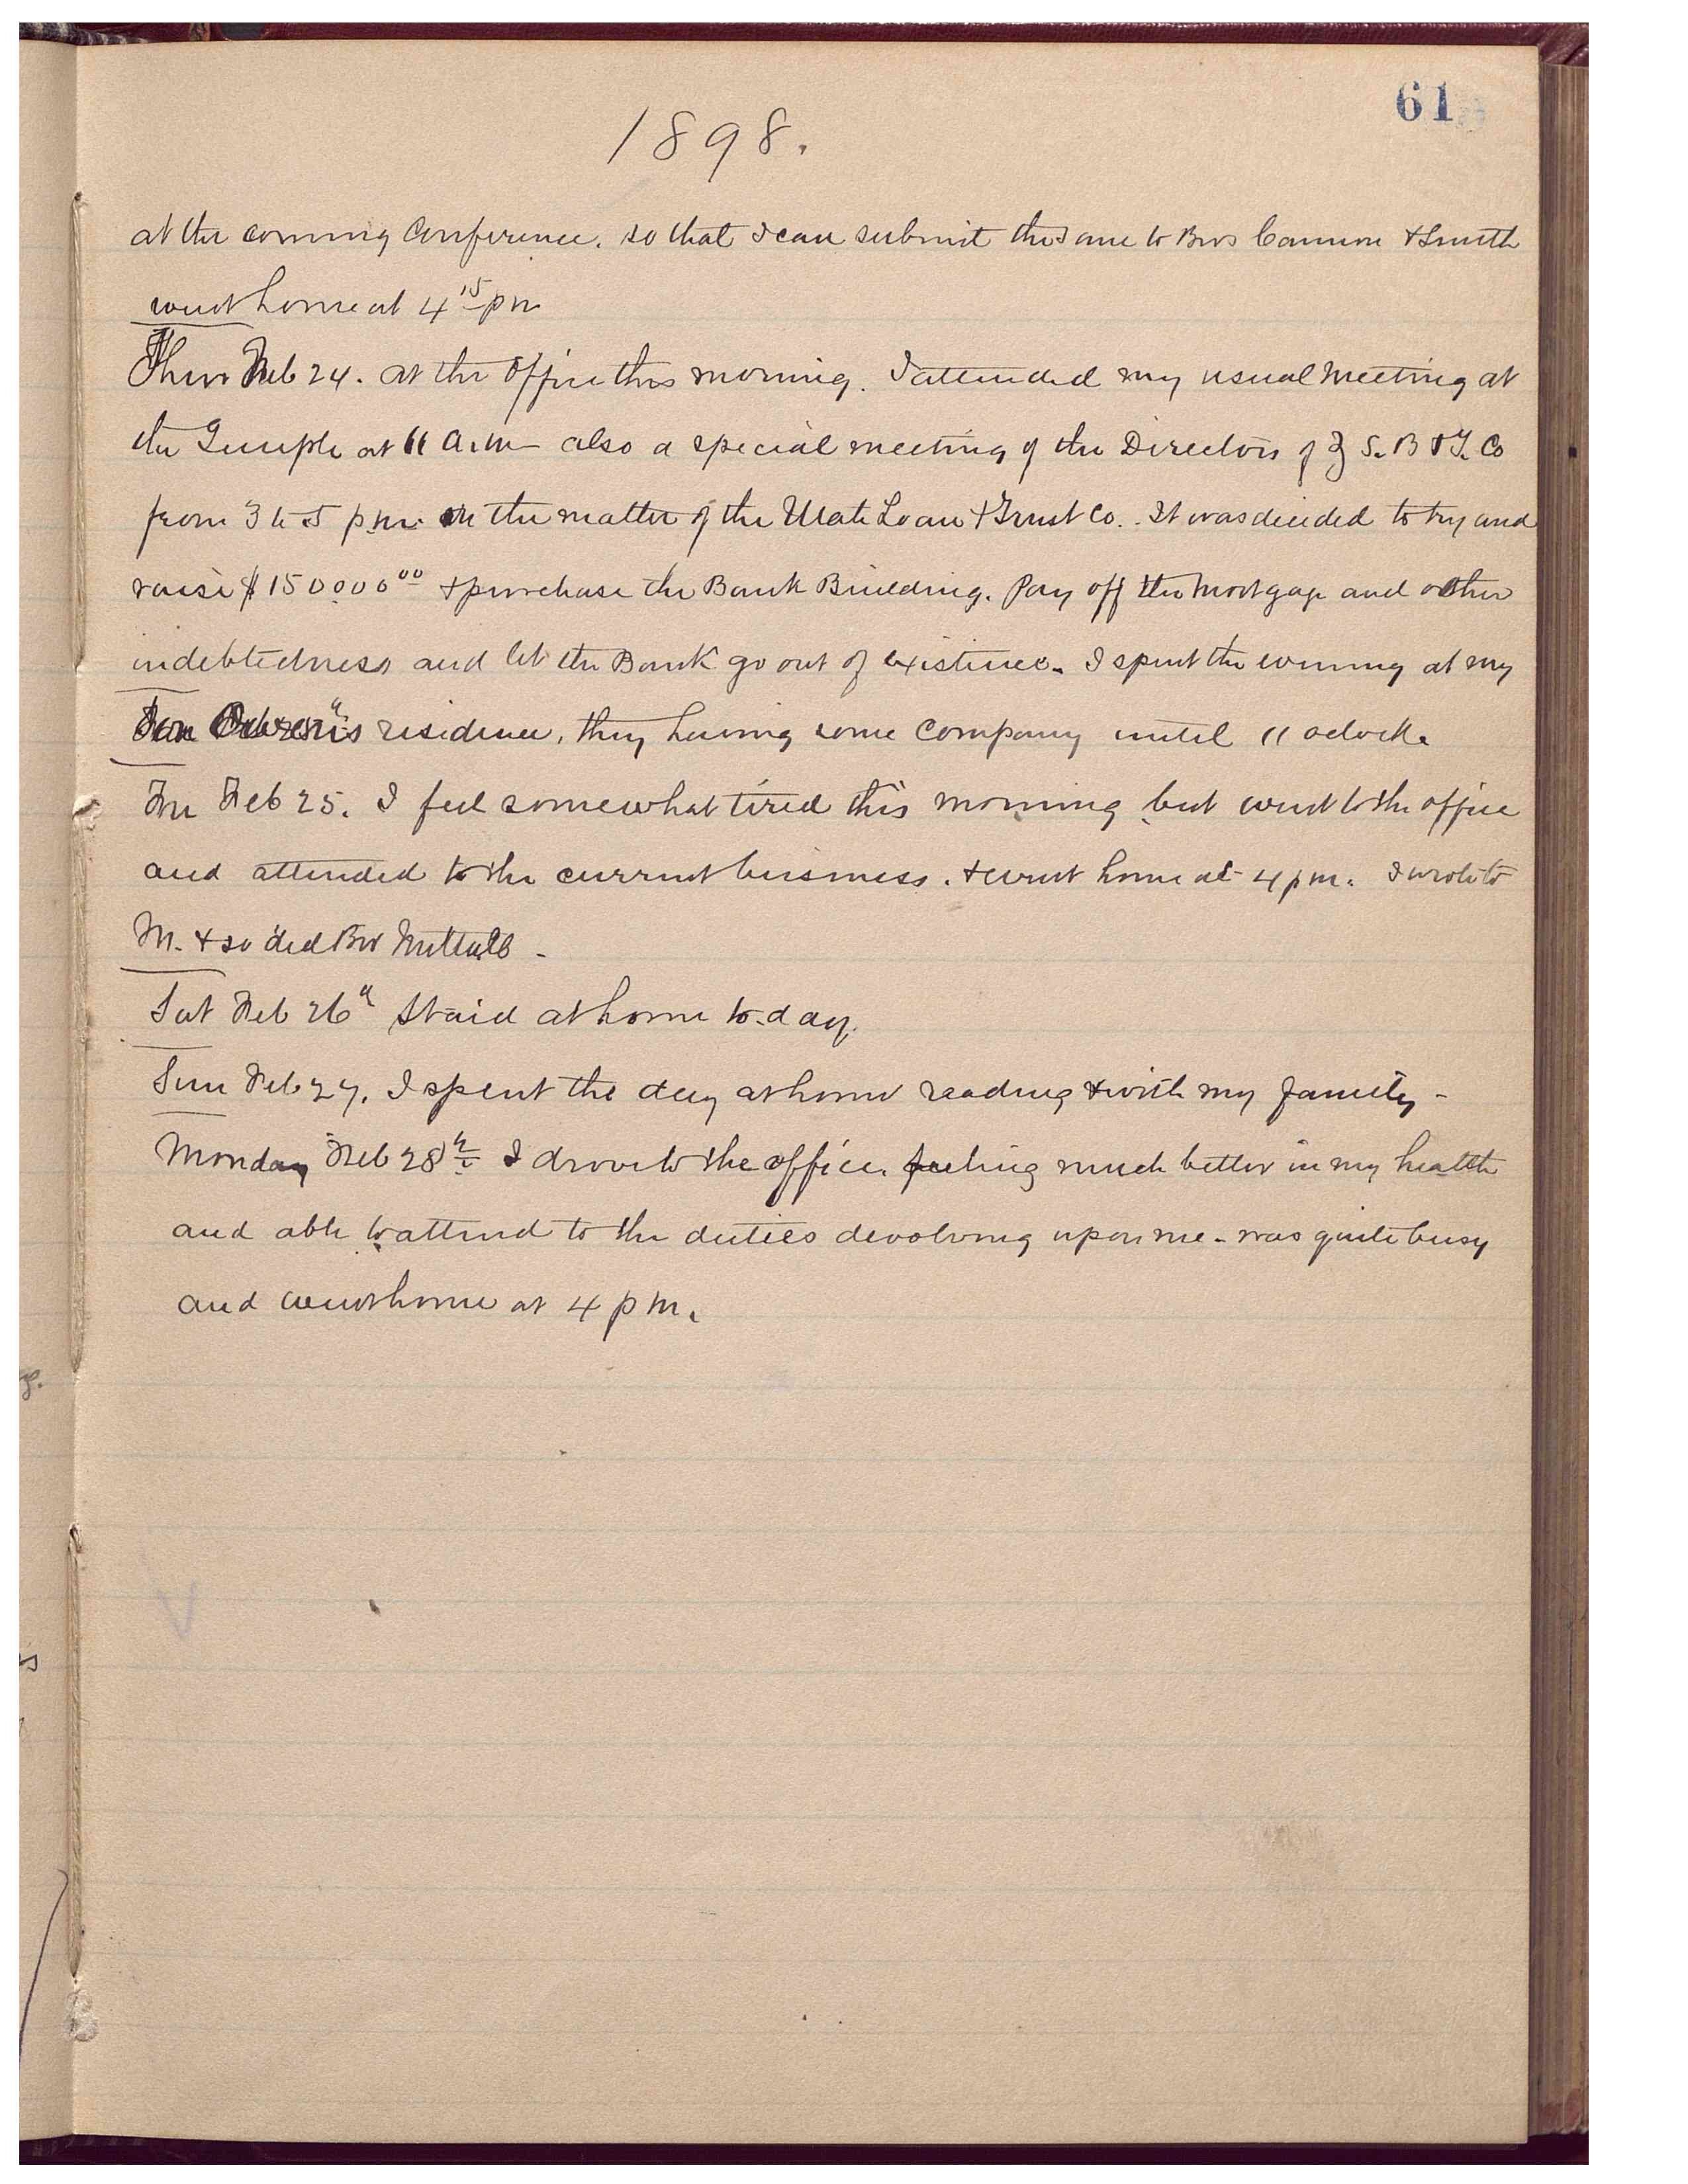 61
1898.
at the coming Conference. so that I can submit the same to Bros Cannon & Smith
went home at 4 15 pm
Thur Feb 24. at the Office this morning. I attended my usual Meeting at
the Temple at 11 a.m - also a special meeting of the Directors of Z S. B & T. Co
from 3 to 5 p.m. on the matter of the Utah Loan & Trust Co. It was decided to try and
raise $150000 00 & purchase the Bank Building. Pay off the Mortgage and other
indebtedness and let the Bank go out of existence. I spent the evening at my
residence, they having some Company until 11 oclock.
Fri Feb 25. I feel somewhat tired this morning but went to the office
and attended to the current business. & went home at 4 pm. I wrote to
M. & so did Bro Nuttall -
Sat Feb 26th Staid at home to-day.
Sun Feb 27. I spent the day at home reading & with my family -
Monday Feb 28th I drove to the office. feeling much better in my health
and able to attend to the duties devolving upon me - was quite busy
and went home at 4 p m.